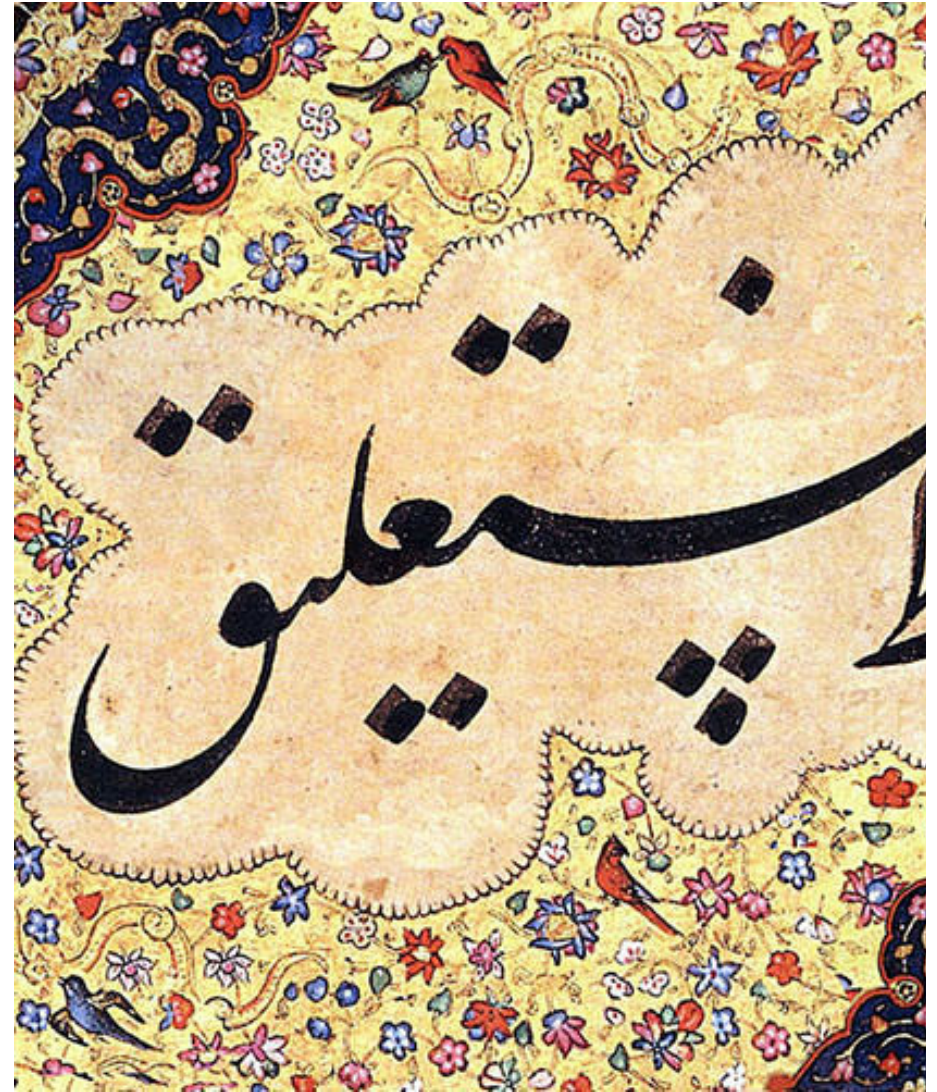 نستعلیق